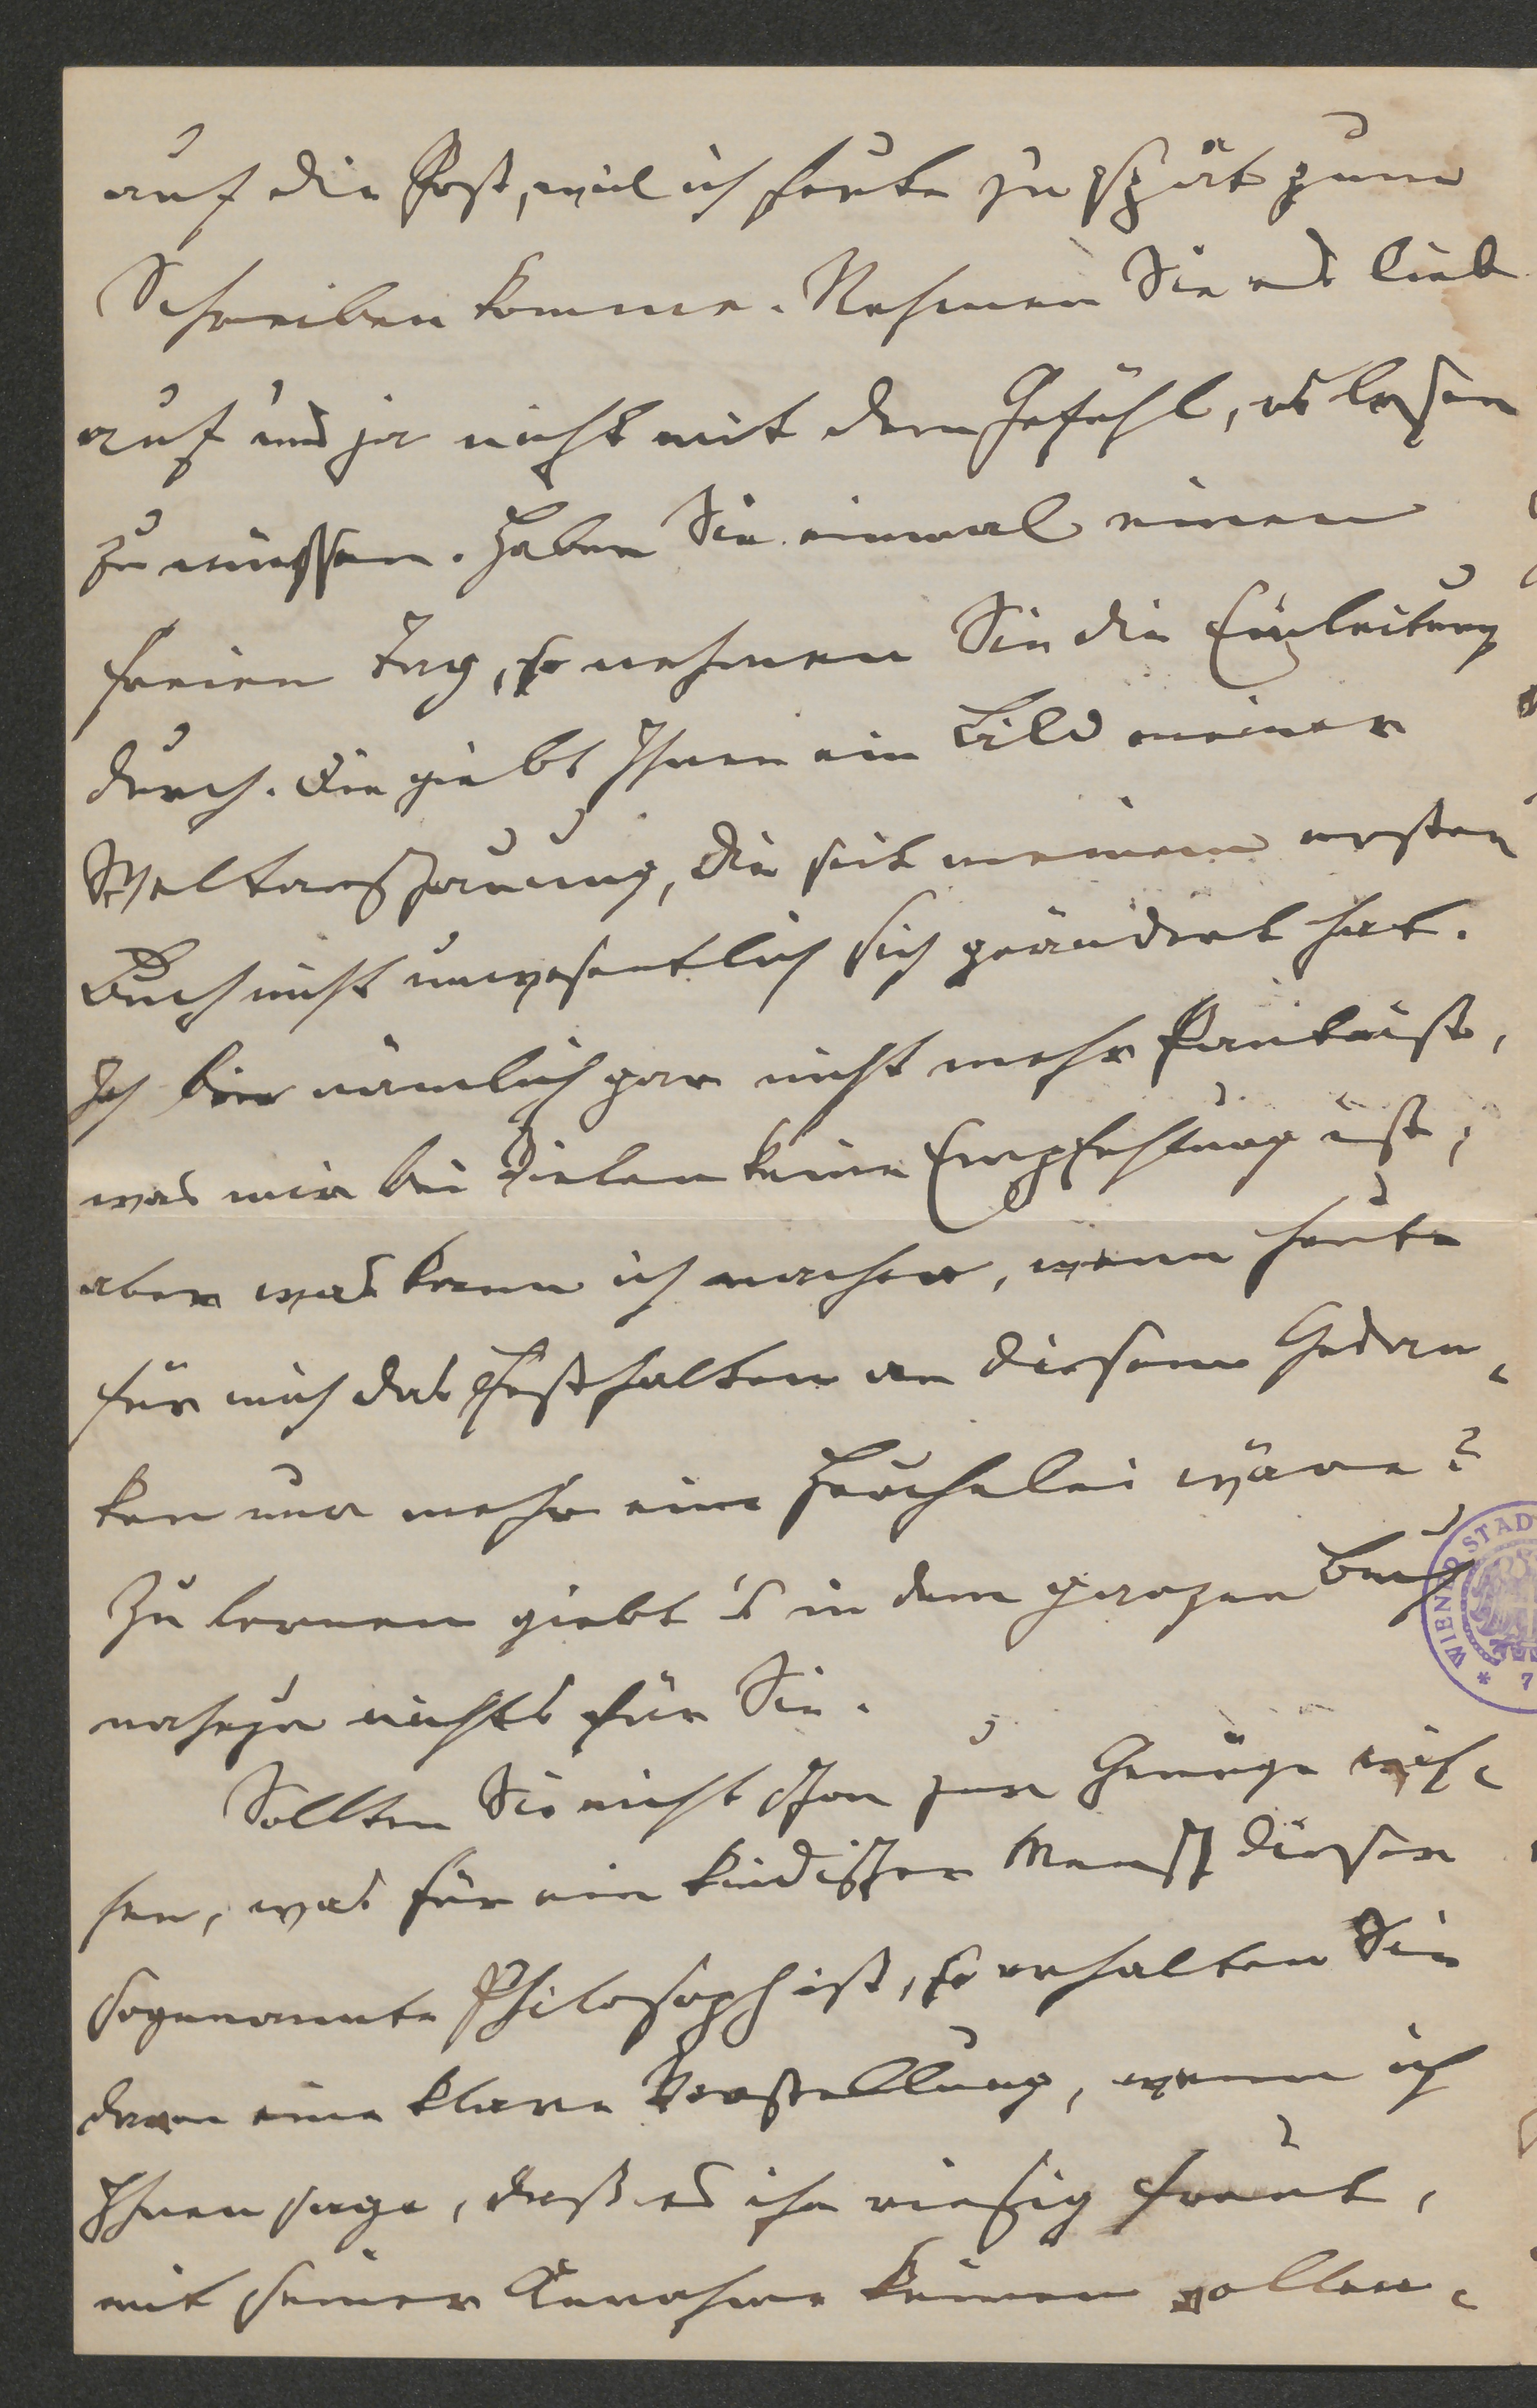 auf die Post, weil ich heute zu spät zum
Schreiben komme. Nehmen Sie es lieb
auf und ja nicht mit dem Gefühl, es lesen
zu müssen. Haben Sie einmal einen
freien Tag, so nehmen Sie die Einleitung
durch. Die giebt Ihnen ein Bild meiner
Weltanschauung, die seit meinem ersten
Buch nicht unwesentlich sich geändert hat.
Ich bin nämlich gar nicht mehr Panteist,
was mir bei Vielen keine Empfehlung ist;
aber was kann ich machen, wenn heute
für mich das Festhalten an diesem Gedan-
ken nur mehr eine Heuchelei wäre?
Zu lernen giebt's in dem ganzen Buch
nahezu nichts für Sie.
Sollten Sie nicht schon zur Genüge wis-
sen, was für ein kindischer Mensch dieser
sogenannte Philosoph ist, so erhalten Sie
davon eine klare Vorstellung, wenn ich
Ihnen sage, daß es ihn riesig freut,
mit seiner Annahme keinen vollen-
WIENER STAD
* 7